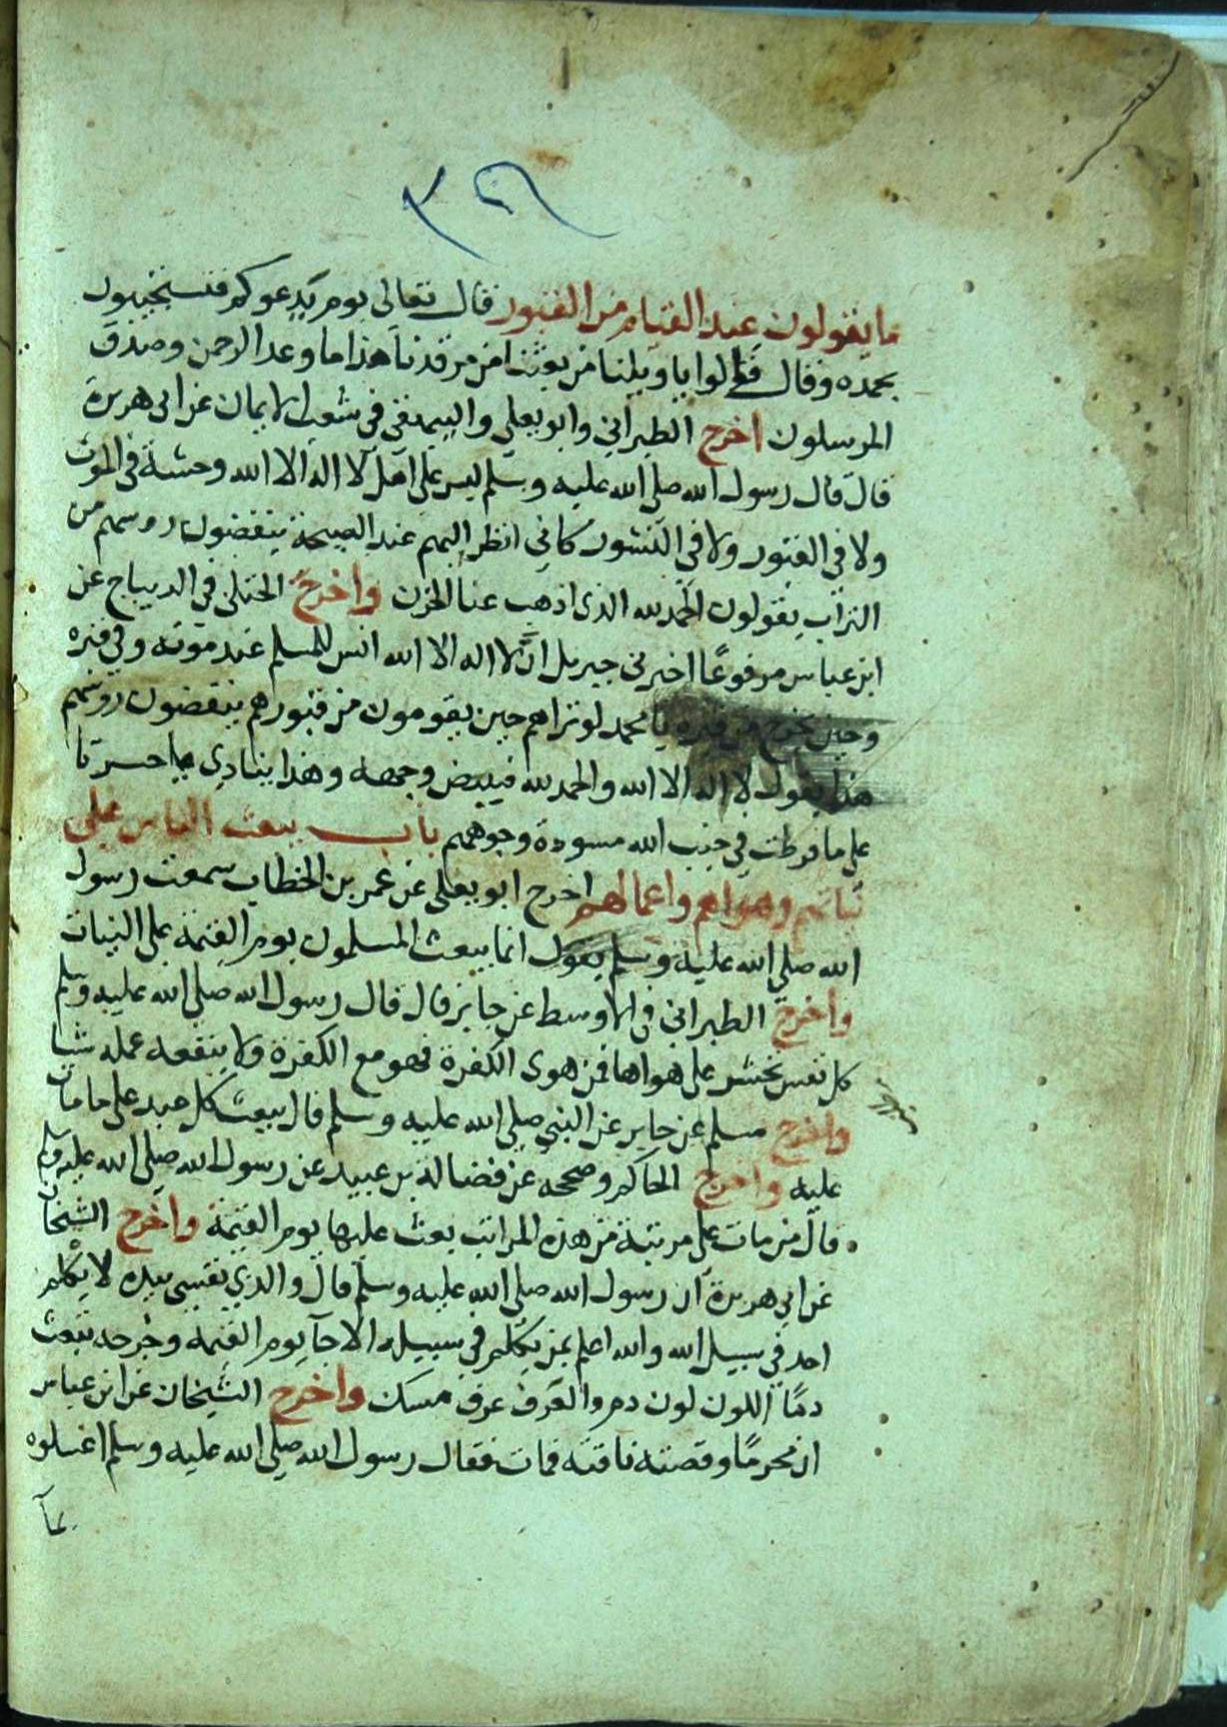 ٣٩
ما يقولون عند القيام من القبور قال تعالى يوم يدعوكم فتستجيبون
بحمده وقال قالوا يا ويلنا من بعثنا من مرقدنا هذا ما وعد الرحمن وصدق
المرسلون اخرج الطبراني وابو يعلي والبيهقي في شعب الايمان عن ابي هريرة
قال قال رسول الله صلى الله عليه وسلم ليس على اهل لا اله الا الله وحشة في الموت
ولا في القبور ولا في النشور كاني انظر اليهم عند الصيحة ينفضون روسهم من
التراب يقولون الحمد لله الذى اذهب عنا الحزن واخرج الختلى في الديباج عن
ابن عباس مرفوعًا اخبرنى جبريل ان لا اله الا الله انس للمسلم عند موته وفي قبره
وحين يخرج من قبره يا محمد لو تراهم حين يقومون من قبورهم ينفضون روسهم
هذا يقول لا اله الا الله والحمد لله فيبيض وجهه وهذا ينادي يا حسرتا
على ما فرطت في جنب الله مسودة وجوههم باب يبعث الناس على
نياتهم وهواهم واعمالهم اخرج ابو يعلى عن عمر بن الخطاب سمعت رسول
الله صلى الله عليه وسلم يقول انما يبعث المسلمون يوم القيمة على النيات
واخرج الطبراني في الاوسط عن جابر قال قال رسول الله صلى الله عليه وسلم
كل نفس تحشر على هواها فمن هوى الكفرة فهو مع الكفرة ولا ينفعه عمله شيا
واخرج مسلم عن جابر عن النبي صلى الله عليه وسلم قال يبعث كل عبد على ما مات
عليه واخرج الحاكم وصححه عن فضالة بن عبيد عن رسول الله صلى الله عليه وسلم
قال من مات على مرتبة من هذه المراتب بعث عليها يوم القيمة واخرج الشيخان
عن ابي هريرة ان رسول الله صلى الله عليه وسلم قال والذي نفسي بيده لا يكلم
احد في سبيل الله والله اعلم بمن يكلم في سبيله الا جآ يوم القيمة وجرحه يثعب
دمًا اللون لون دم والعرف عرف مسك واخرج الشيخان عن ابن عباس
ان محرمًا وقصته ناقته فمات فقال رسول الله صلى الله عليه وسلم اغسلوه
بمآ